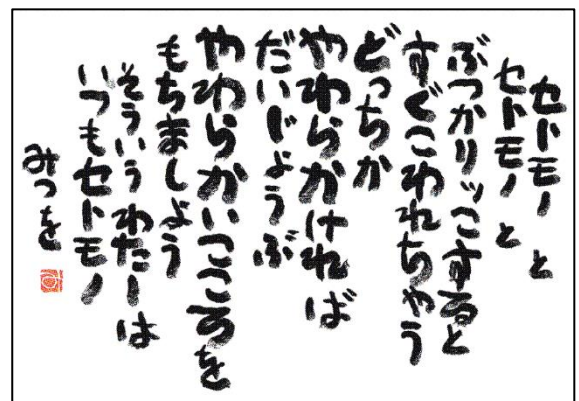 セトモノと
セトモノと
ぶつかりッこすると
すぐこわれちゃう
どっちか
やわらかければ
だいじょうぶ
やわらかいこころを
もちましょう
そういうわたしは
いつもセトモノ
みつを